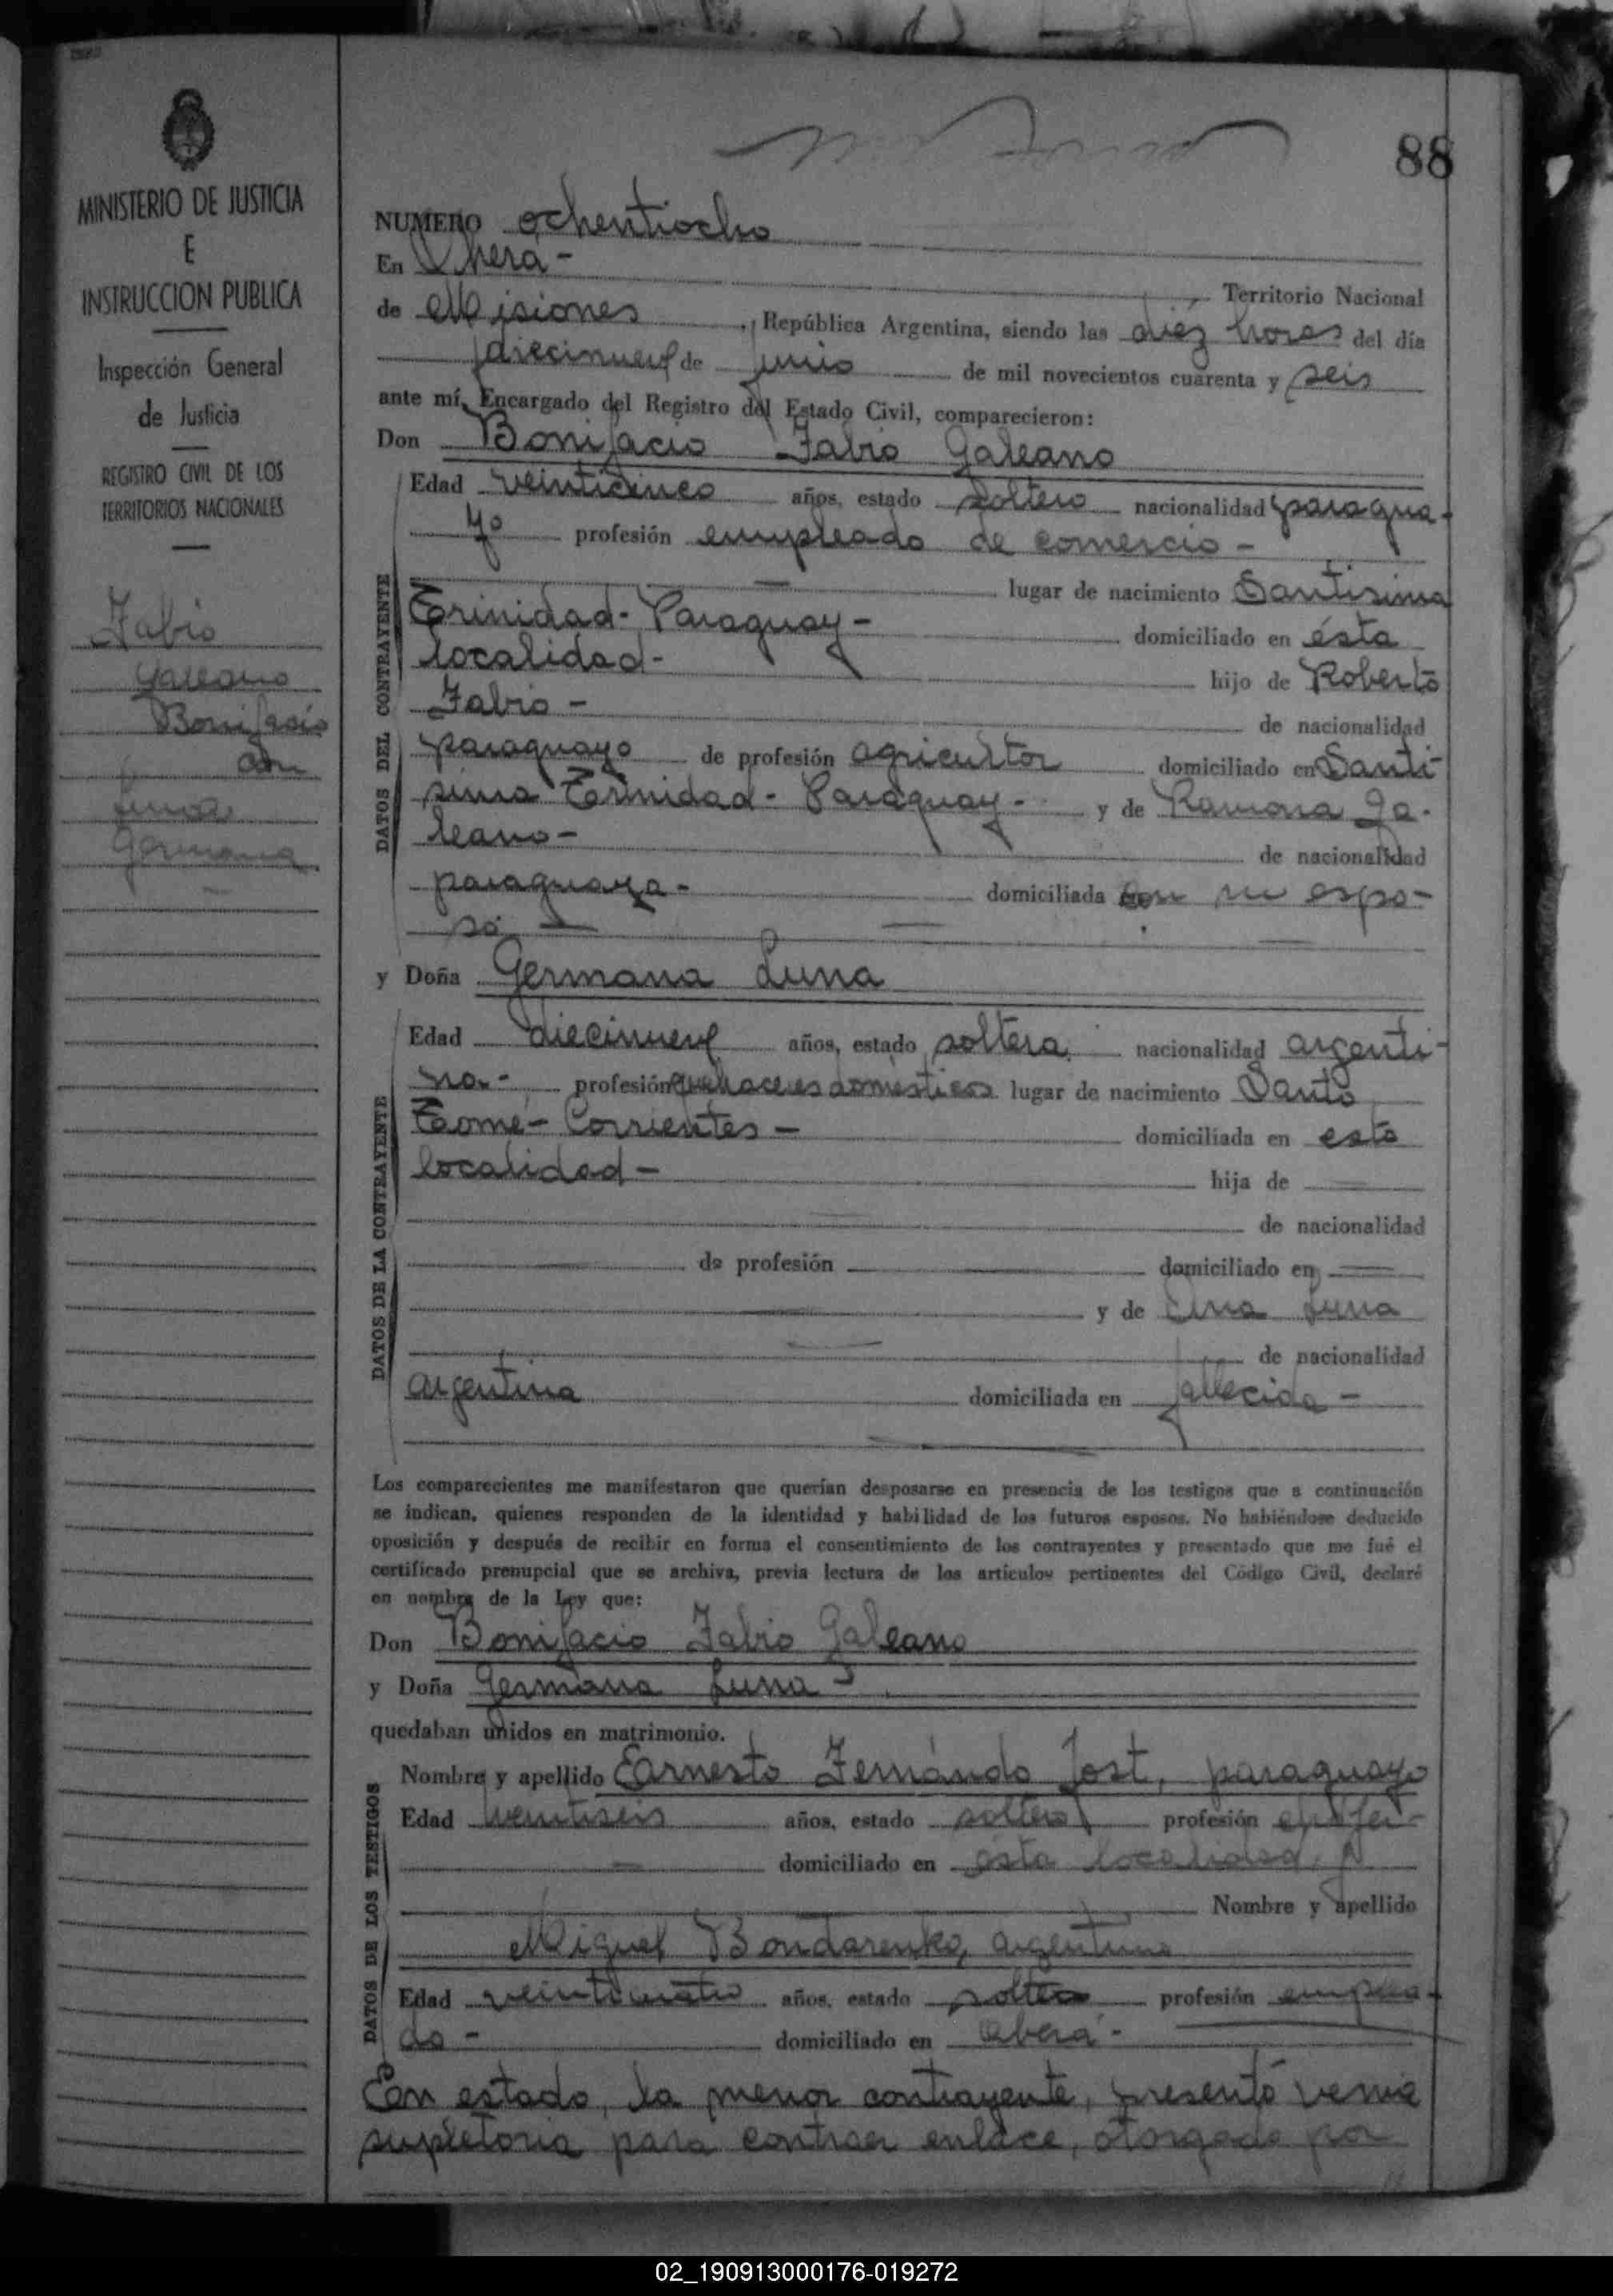 88
MINISTERIO DE JUSTICIA
E
INSTRUCCION PUBLICA
Inspección General
de Justicia
REGISTRO CIVIL DE LOS
TERRITORIOS NACIONALES
Fabio
Galeano
Bonifacio
con
Luna
Germana
NUMERO ochentiocho
En Oberá -
Territorio Nacional
de Misiones, República Argentina, siendo las diez horas del día
diecinueve de junio de mil novecientos cuarenta y seis
ante mí, Encargado del Registro del Estado Civil, comparecieron:
Don Bonifacio Fabio Galeano
DATOS DEL CONTRAYENTE
Edad veinticinco años, estado soltero nacionalidad paragua-
yo profesión empleado de comercio -
lugar de nacimiento Santisima
Trinidad - Paraguay - domiciliado en ésta
localidad - hijo de Roberto
Fabio - de nacionalidad
paraguayo de profesión agricultor domiciliado en Santi-
sima Trinidad - Paraguay - y de Ramona Ga-
leano - de nacionalidad
paraguaya - domiciliada con su espo-
so
y Doña Germana Luna
DATOS DE LA CONTRAYENTE
Edad diecinueve años, estado soltera nacionalidad argenti-
na - profesión quehaceres domésticos lugar de nacimiento Santo
Tomé - Corrientes - domiciliada en esta
localidad - hija de
de nacionalidad
de profesión domiciliado en
y de Luna
de nacionalidad
argentina domiciliada en fallecida -
Los comparecientes me manifestaron que querían desposarse en presencia de los testigos que a continuación
se indican, quienes responden de la identidad y habilidad de los futuros esposos. No habiéndose deducido
oposición y después de recibir en forma el consentimiento de los contrayentes y presentado que me fué el
certificado prenupcial que se archiva, previa lectura de los artículos pertinentes del Código Civil, declaré
en nombre de la Ley que:
Don Bonifacio Fabio Galeano
y Doña Germana Luna -
quedaban unidos en matrimonio.
DATOS DE LOS TESTIGOS
Nombre y apellido Ernesto Fernándo Jost, paraguayo
Edad veintiseis años, estado soltero profesión chófer -
domiciliado en ésta localidad, y
Nombre y apellido
Miguel Bondarenko, argentino
Edad veinticuatro años, estado soltero profesión emplea-
do - domiciliado en Oberá -
En estado, la menor contrayente, presentó venia
supletoria para contraer enlace, otorgada por
02_190913000176-019272